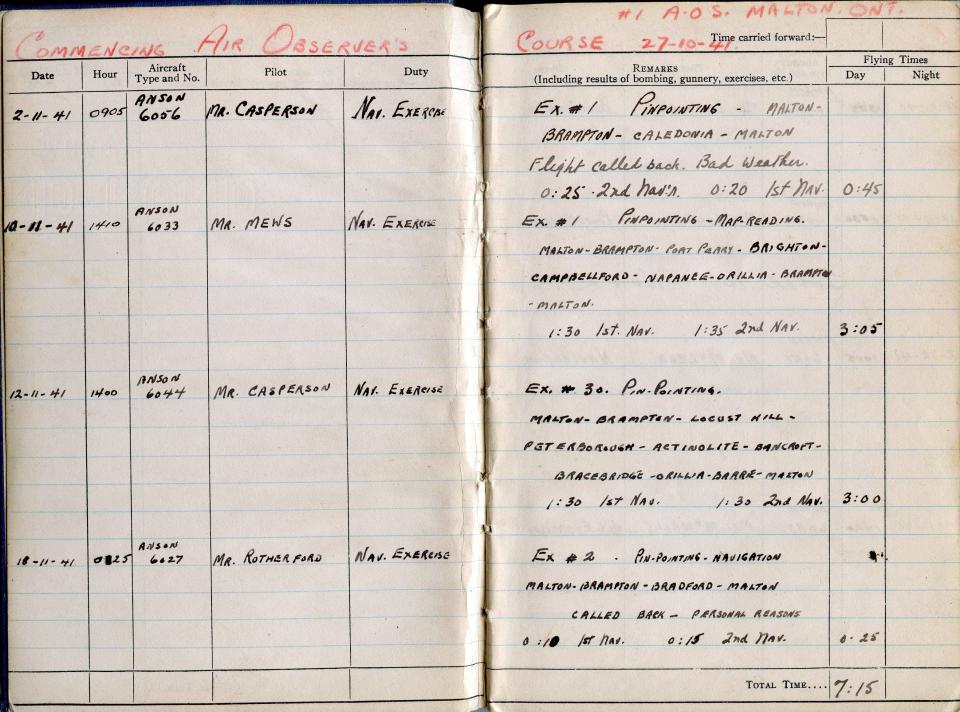 #1 A.O.S. MALTON. ONT.
COMMENCING AIR OBSERVER'S COURSE 27-10-41.
Time carried forward:—
Date Hour Aircraft Type and No. Pilot Duty REMARKS (Including results of bombing, gunnery, exercises, etc.) Flying Times Day Night
2-11-41 0905 ANSON 6056 MR. CASPERSON NAV. EXERCISE Ex. #1 PINPOINTING - MALTON-
BRAMPTON- CALEDONIA - MALTON
Flight called back. Bad Weather.
0:25 2nd Nav'n. 0:20 1st Nav. 0:45
10-11-41 1410 ANSON 6033 MR. MEWS NAV. EXERCISE Ex. #1 PINPOINTING -MAP-READING.
MALTON-BRAMPTON- PORT PERRY- BRIGHTON-
CAMPBELLFORD- NAPANEE-ORILLIA- BRAMPTON
-MALTON.
1:30 1st. Nav. 1:35 2nd Nav. 3:05
12-11-41 1400 ANSON 6044 MR. CASPERSON NAV. EXERCISE Ex. # 30. PIN-POINTING.
MALTON-BRAMPTON- LOCUST HILL -
PETERBOROUGH - ACTINOLITE- BANCROFT-
BRACEBRIDGE -ORILLIA-BARRE- MALTON
1:30 1st Nav. 1:30 2nd Nav. 3:00
ANSON 6027 MR. ROTHERFORD NAV. EXERCISE Ex #2. PIN-POINTING-NAVIGATION
MALTON-BRAMPTON-BRADFORD-MALTON
CALLED BACK - PERSONAL REASONS
0:10 1st Nav. 0:15 2nd Nav. 0-25
TOTAL TIME.... 7:15